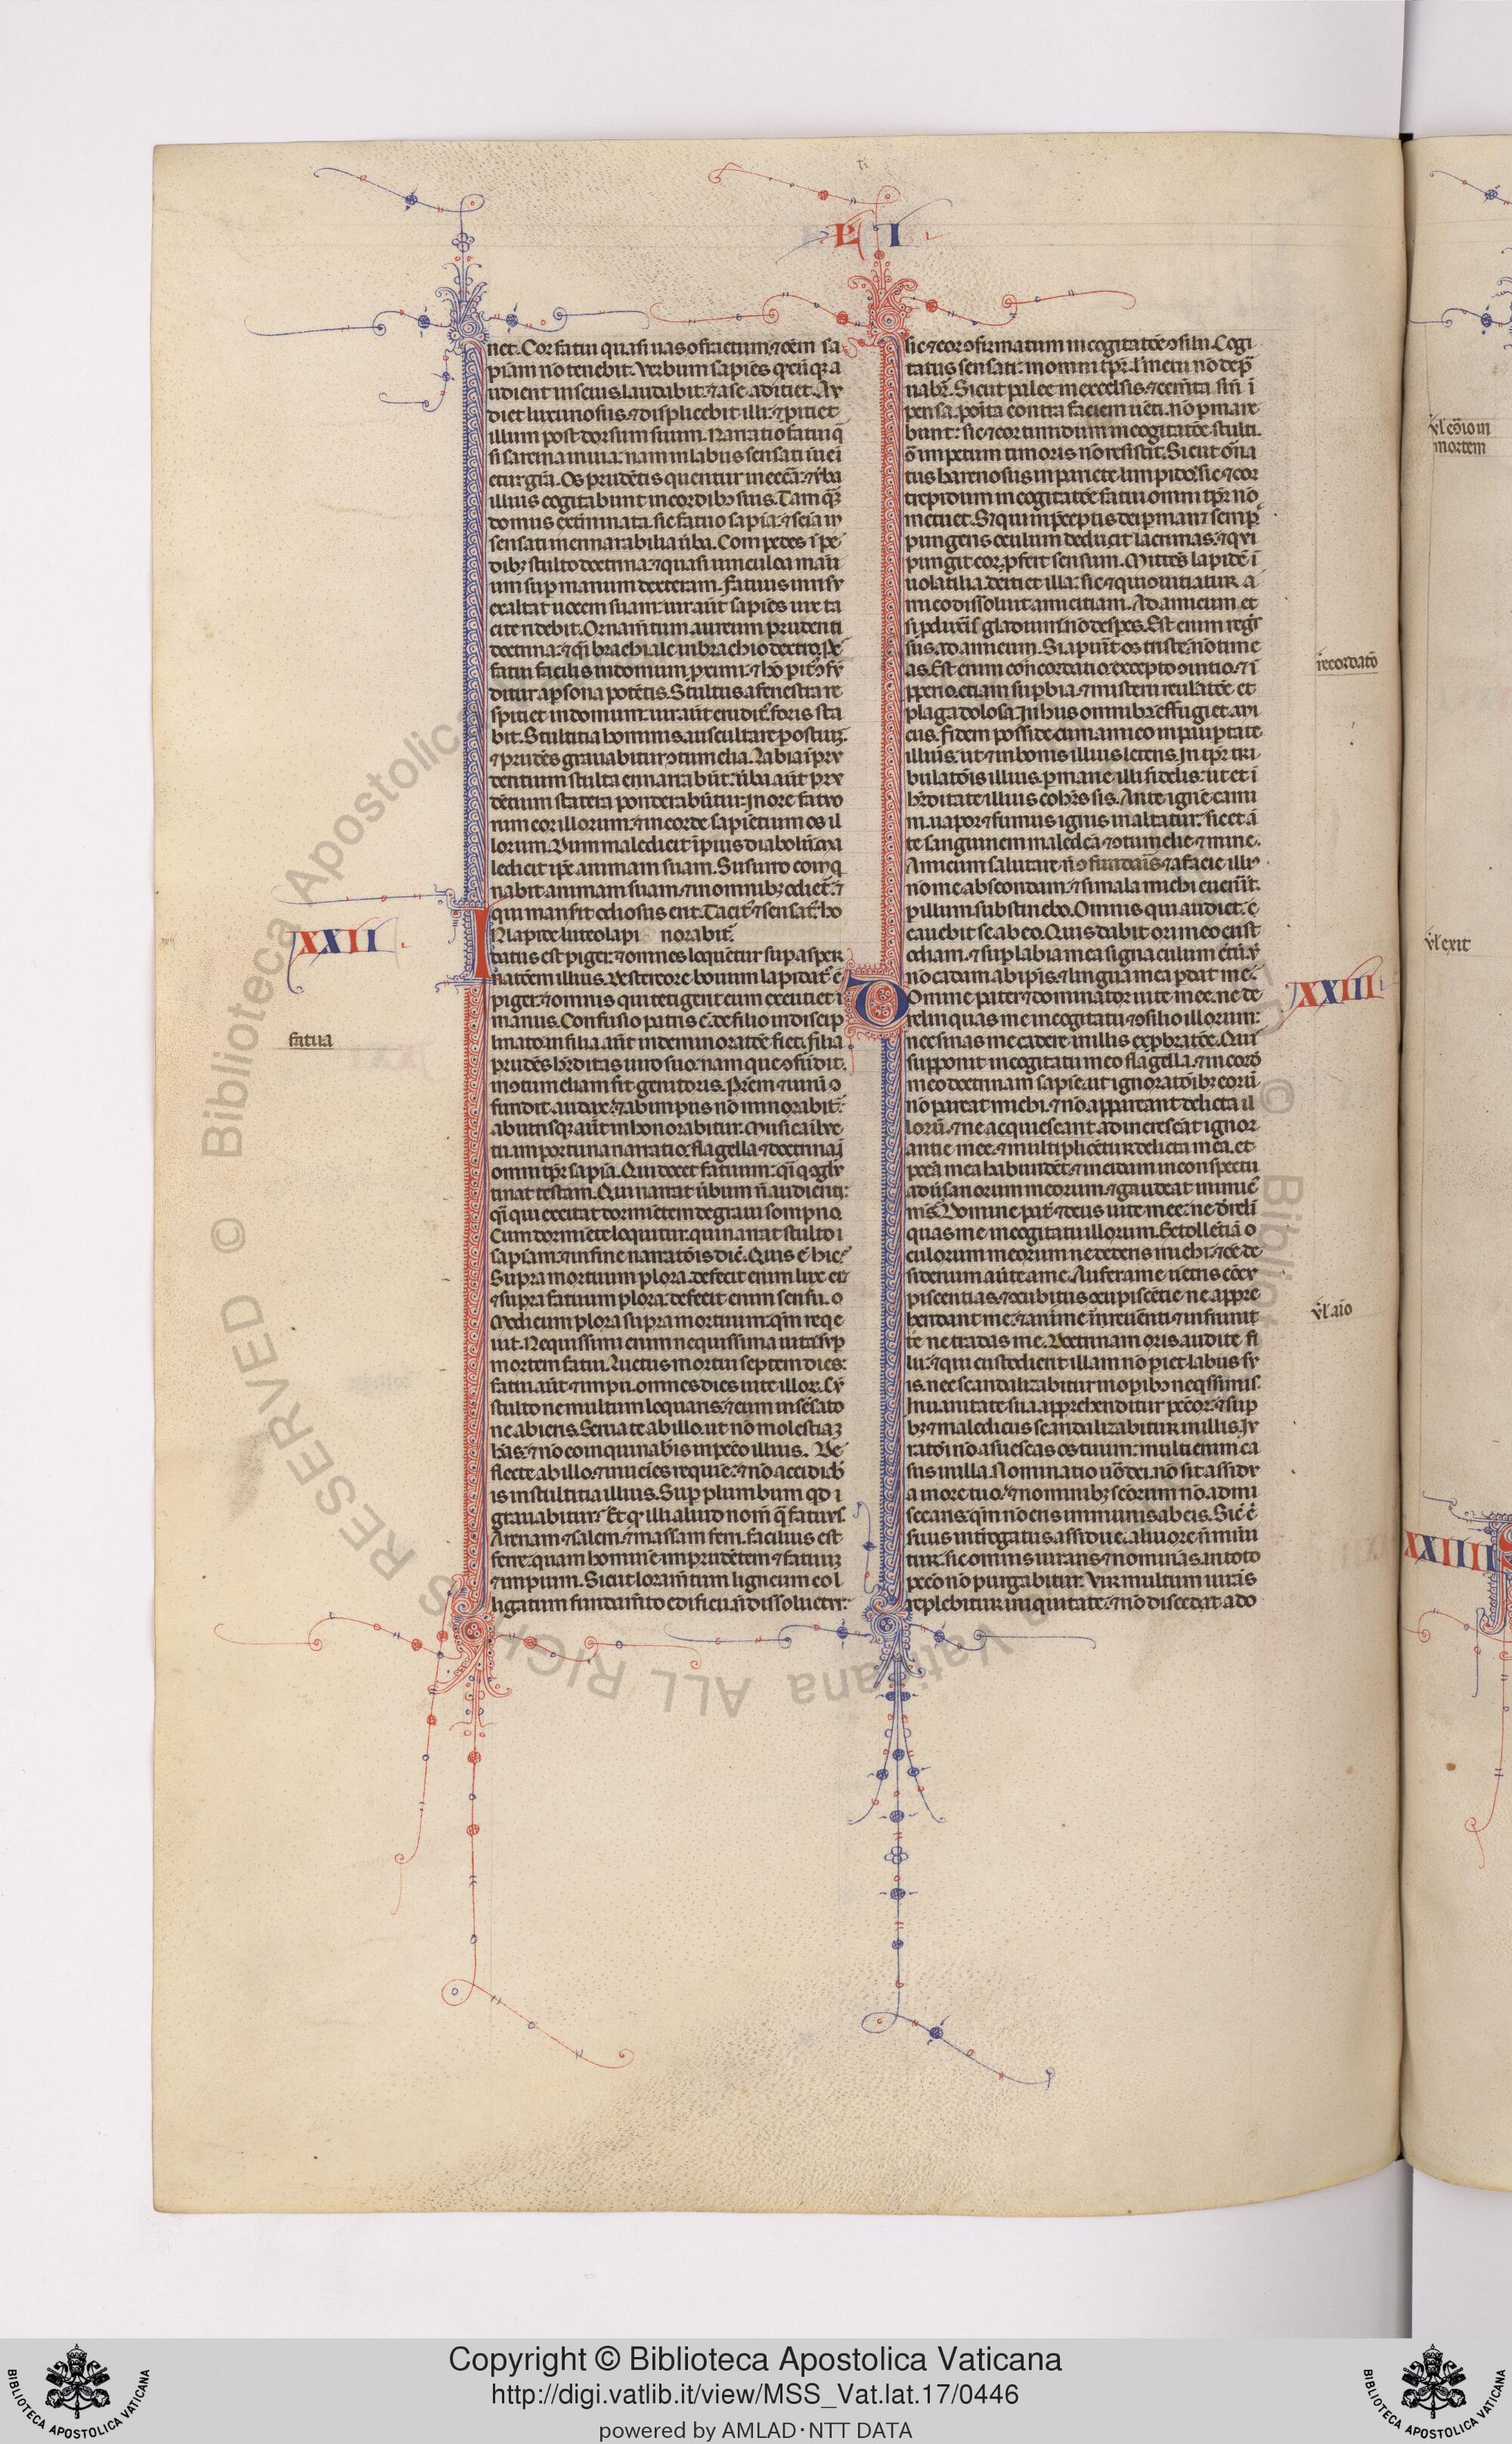 LI
net. Cor fatui quasi uas ɔfractum. ⁊ oēm sa
piam nō tenebit. Verbum sapiēs q̄cūq; a
udierit insciuslaudabit. ⁊ a se adiciet. Au
diet luxuriosus. ⁊ displicebit illi. ⁊ ꝓiciet
illum post dorsum suum. Narratio fatui q̄
si sarcina in uia. nam in labiis sensati iuēi
etur gr̄a. Os prudētis queritur in eccl̄ia. ⁊ ūba
illius cogitabunt in cordibꝫ suis. Tamq̄
domus exterminata. sic fatuo sapīa. ⁊ scīa in
sensati inenarrabilia ūba. Compedes i pe
dibꝫ stulto doctrina. ⁊ quasi uincula ma
um sup manum dexteram. Fatuus in risu
exaltat uocem suam. uir aūt sapiēs uix ta
cite ridebit. Ornam̄tum aureum prudenti
doctrina. ⁊ q̄i brachiale in brachio dextro. Pes
fatui facilis in domum ꝓximi. ⁊ hō pit᷑ ɔfū
ditur a ꝑsona potētis. Stultus a fenestra re
spiciet in domum. uir aūt erudit᷑ foris sta
bit. Stultitia hominis auscultare ꝑ ostiuꝫ.
⁊ prudēs grauabitur ɔtumelia. Labia ipru
dentium stulta enarrabūt. ūba aūt pru
dētium statera ponderabūtur. In ore fatuo
rum cor illorum. ⁊ in corde sapiētium os il
lorum. Dum maledicit ipius diabolū. ma
ledicit ip̄e animam suam. Susurro coinq̄
nabit animam suam. ⁊ in omnibꝫ odiet᷑. ⁊
qui manserit odiosus erit. Tacit᷑ ⁊ sensat᷑ ho
norabit᷑.
XXII
IN lapide luteo lapi
datus est piger. ⁊ omnes loquētur sup asper
natōem illius. De stercore boum lapidat᷑ ē
piger. ⁊ omnis qui tetigerit eum excutiet
manus. Confusio patris ē. de filio indiscip
linato. filia aūt in deminoratōe fiet. filia
fatua
prudēs h̄reditas uiro suo. nam que ɔfūdit.
in ɔtumeliam fit genitoris. Prēm ⁊ uirū ɔ
fundit audax. ⁊ ab impiis nō minorabit᷑.
ab utrisq; aūt inhonorabitur. Musica i luc
tu importuna narratio. flagella ⁊ doctrina i
omni tp̄r sapīa. Qui docet fatuum. q̄i q̄ ɔglu
tinat testam. Qui narrat ūbum n̄ audienti.
q̄i qui excitat dormiētem de graui sompno.
Cum dormiēte loquitur. qui narrat stulto
sapīam. ⁊ in fine narratōis dic̄. Quis ē hic?
Supra mortuum plora. defecit enim lux ei᷑
⁊ supra fatuum plora. defecit enim sensu.
Modicum plora supra mortuum. qm̄ reqe
uit. Nequissimi enim nequissima uita sup
mortem fatui. Luctus mortui septem dies.
fatui aūt ⁊ impii. omnes dies uite illoꝝ. Cū
stulto ne multum loquaris. ⁊ cum insēsato
ne abieris. Serua te ab illo. ut nō molestiaꝫ
hēas. ⁊ nō coinquinabis in pccō illius. De
flecte ab illo. ⁊ inuenies requiē. ⁊ nō accidiab
is in stultitia illius. Sup plumbum qd i
grauabitur? Et q illi aliud nom̄ q̄ fatus.
Arenam ⁊ salem. ⁊ massam ferri. facilius est
ferre. quam hominē imprudētem ⁊ fatuuꝫ
⁊ impium. Sicut loram̄tum ligneum col
ligatum fundam̄to edificii. n̄ dissoluetur.
sic ⁊ cor ɔfirmatum in cogitatōe ɔsilii. Cogi
tatus sensati. in omni tp̄r. ł metu nō dep̄
uabit᷑. Sicut palee in excelsis. ⁊ cem̄ta sin̄ i
pensa. posita contra faciem uēti. nō ꝑmane
bunt. sic ⁊ cor timidum in cogitatōe stulti.
ō impetum timoris nō resistit. Sicut orna
tus harenosus in pariete limpido. sic ⁊ cor
trepidum in cogitatōe fatui omni tp̄r nō
metuet. S; qui in p̄ceptis dei ꝑman; semp᷑.
pungens oculum deducit lacrimas. ⁊ qui
pungit cor. ꝓfert sensum. Mittēs lapidē i
uolatilia. deiciet illa. sic ⁊ qui ɔuitiatur a
mico dissoluit amicitiam. Ad amicum et
si ꝓduxeris gladium. nō despes. Est enim reg̃s
sus ad amicum. Si apuīt os triste. nō time
as. Est enim concordatio. excepto ɔuitio. ⁊ i
recordatō
ꝓperio. etiam supbia. ⁊ misterii reulatōe et
plaga dolosa. In hiis omnibꝫ effugiet ami
cus. Fidem posside cum amico in paupertate
illius. ut ⁊ in bonis illius leteris. In tp̄r tri
bulatōis illius. ꝑmane illi fidelis. ut et i
h̄reditate illius coh̄es sis. Ante ignē cami
ni. uapor ⁊ fumus ignis inaltatur. sic et a
te sanguinem maledcā. ⁊ ɔtumelie. ⁊ mine.
Amicum salutare n̄ ɔfundar. ⁊ a facie illi᷒
nō me abscondam. ⁊ si mala michi euen̄it.
ꝑ illum substinebo. Omnis qui audiet. 
cauebit se ab eo. Quis dabit ori meo cust
odiam. ⁊ sup labia mea signaculum c̄tū. ut
vł exit
nō cadam ab ipis. ⁊ lingua mea ꝑdat me?
XXIII
Domine pater ⁊ dominator uite mee. ne de
relinquas me in cogitatu ⁊ ɔsilio illorum.
nec sinas me cadere in illis exꝓbratōe. Quis
supponit in cogitatu meo flagella. ⁊ in cord
meo doctrinam sapīe. ut ignoratōibꝫ eoꝝ
nō parcat michi. ⁊ nō appareant delicta il
lorū. ⁊ ne acquiescant. adincrescāt ignor
antie mee. ⁊ multiplicētur delicta mea. et
pccā mea habundēt. ⁊ incidam in conspectu
aduersariorum meorum. ⁊ gaudeat inimic᷒
m̄s. Domine pat᷑ ⁊ deus uite mee. ne dereli
quas me in cogitatu illorum. Extollētiā o
culorum meorum ne dederis michi. ⁊ oē de
siderium auerte a me. Aufer a me uētris ɔcu
piscentias. ⁊ ɔcubitus ɔcupiscētie ne appre
hendant me. ⁊ anime irreuerēti ⁊ infrunit
vł aīo
te ne tradas me. Doctrinam oris audite fi
lii. ⁊ qui custodierit illam nō piet labiis su
is. nec scandalizabitur in opibꝫ neqssimis.
In uanitate sua apprehenditur pccōr. ⁊ sup
bꝫ ⁊ maledicus scandalizabitur in illis. Iu
ratōi nō asuescas os tuum. multi enim ca
sus in illa. Nominatio uō dei. nō sit assidu
a in ore tuo. ⁊ nominibꝫ scōrum nō admi
scearis. qm̄ nō eris immunis ab eis. Sic̄ ē
suus interrogatus assidue. a liuore n̄ minu
tur. sic omnis iurans ⁊ nominās. in toto
pccō nō purgabitur. Vir multum iurās
replebitur iniquitate. ⁊ nō discedat a do
vł oēiom
mortem
XXIIII
Copyright © Biblioteca Apostolica Vaticana
http://digi.vatlib.it/view/MSS_Vat.lat.17/0446
powered by AMLAD·NTT DATA
BIBLIOTECA APOSTOLICA VATICANA
BIBLIOTECA APOSTOLICA VATICANA
© Biblioteca Apostolica Vaticana ALL RIGHTS RESERVED